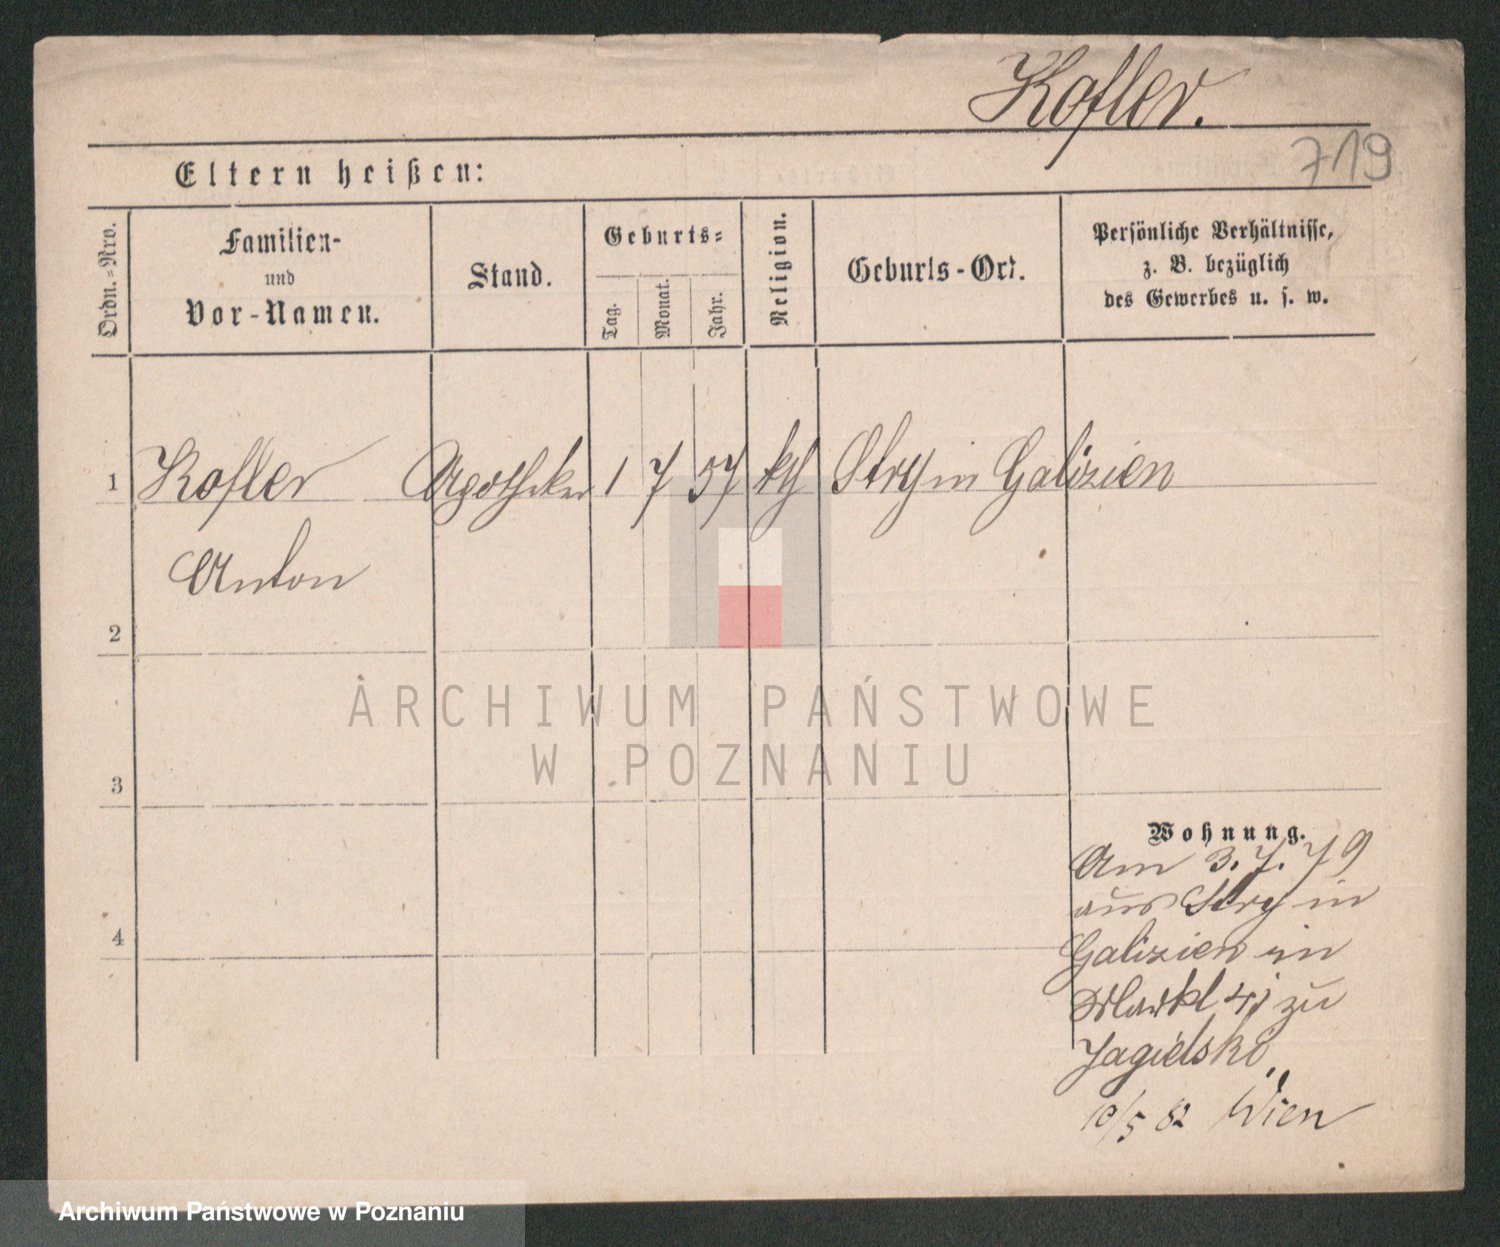 Kofler.
719
Eltern heißen:
Ordn.=Nro.
Familien-
und
Vor-Namen.
Stand.
Geburts=
Tag.
Monat.
Jahr.
Religion.
Geburts-Ort.
Persönliche Verhältnisse,
z. B. bezüglich
des Gewerbes u. s. w.
1 Kofler Apotheker 1 7 57 kth Stry in Galizien
Anton
2
ARCHIWUM PAŃSTWOWE
W POZNANIU
3
Wohnung.
Am 3. 7. 79
aus Stry in
Galizien in
Markt 41 zu
Jagielski
4
10/5 82 Wien
Archiwum Państwowe w Poznaniu